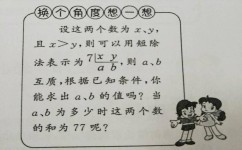 换个角度想一想
设这两个数为x、y,
且x>y,则可以用短除
法表示为 7|x y
a b ,则a、b
互质,根据已知条件,你
能求出a、b的值吗?当
a、b为多少时这两个数
的和为77呢?